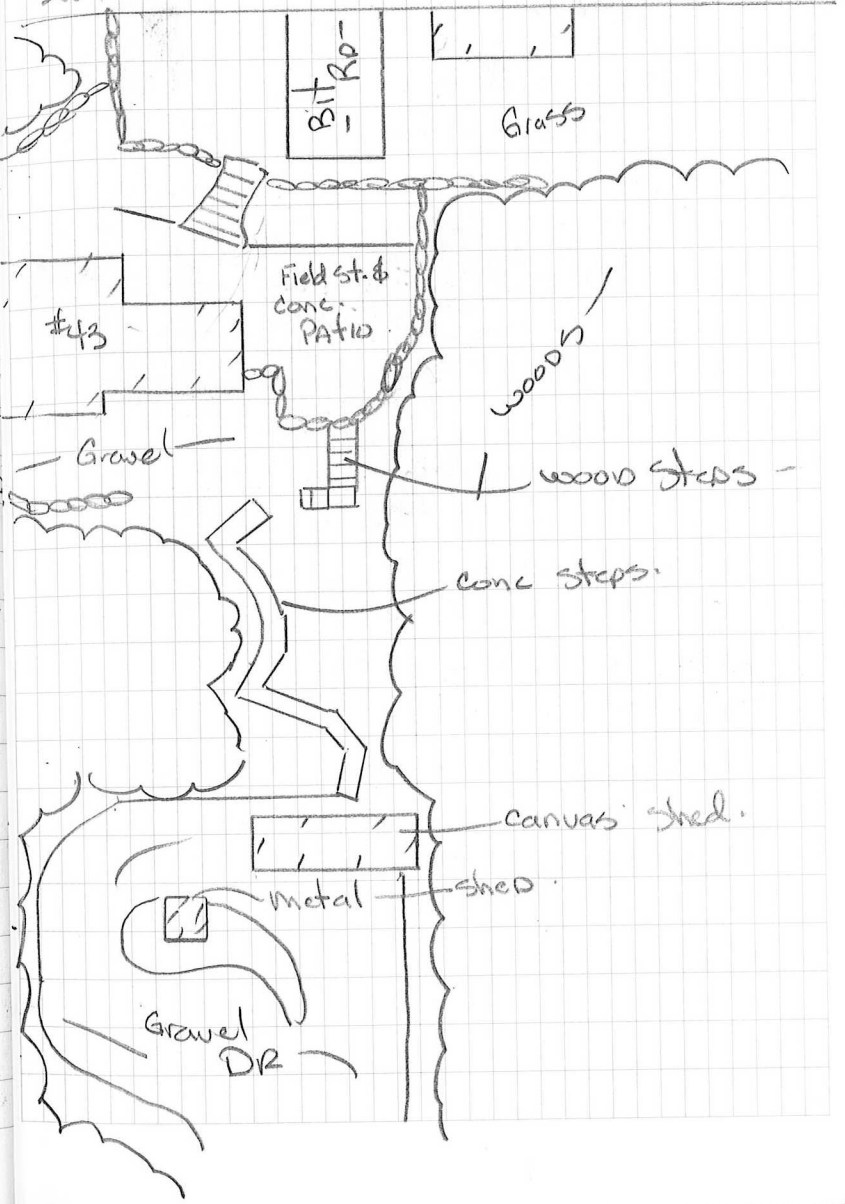 Bit
RD-
Grass
Field st. &
conc.
PATIO
#43
WOODS
Gravel
WOOD Steps -
conc steps.
canvas shed.
metal shed.
Gravel
DR